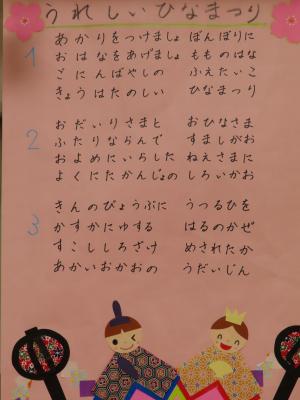 うれしいひなまつり
1
あかりをつけましょ　ぼんぼりに
おはなをあげましょ　もものはな
ごにんばやしの　ふえたいこ
きょうはたのしい　ひなまつり
2
おだいりさまと　おひなさま
ふたりならんで　すましがお
およめにいらした　ねえさまに
よくにたかんじょの　しろいかお
3
きんのびょうぶに　うつるひを
かすかにゆする　はるのかぜ
すこししろざけ　めされたか
あかいおかおの　うだいじん